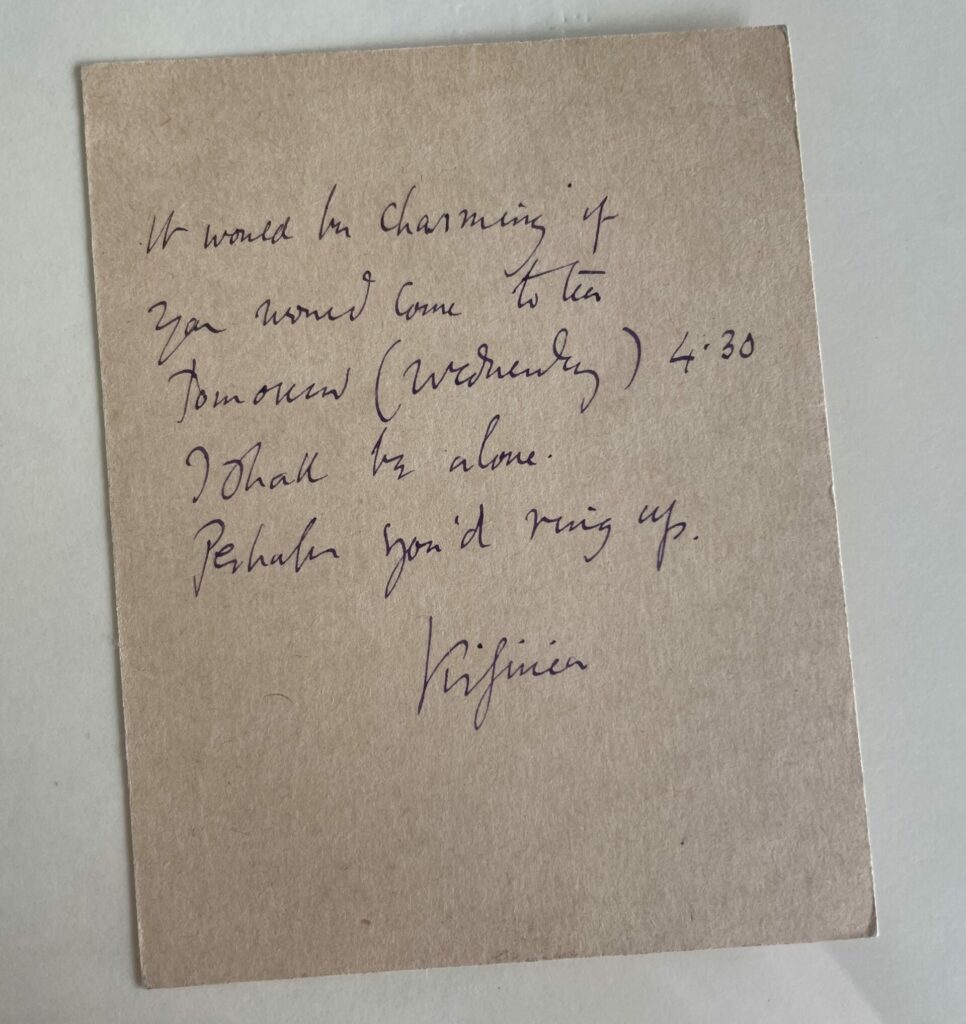 It would be charming if
you would come to tea
Tomorrow (Wednesday) 4.30
I shall be alone.
Perhaps you'd ring up.
Virginia